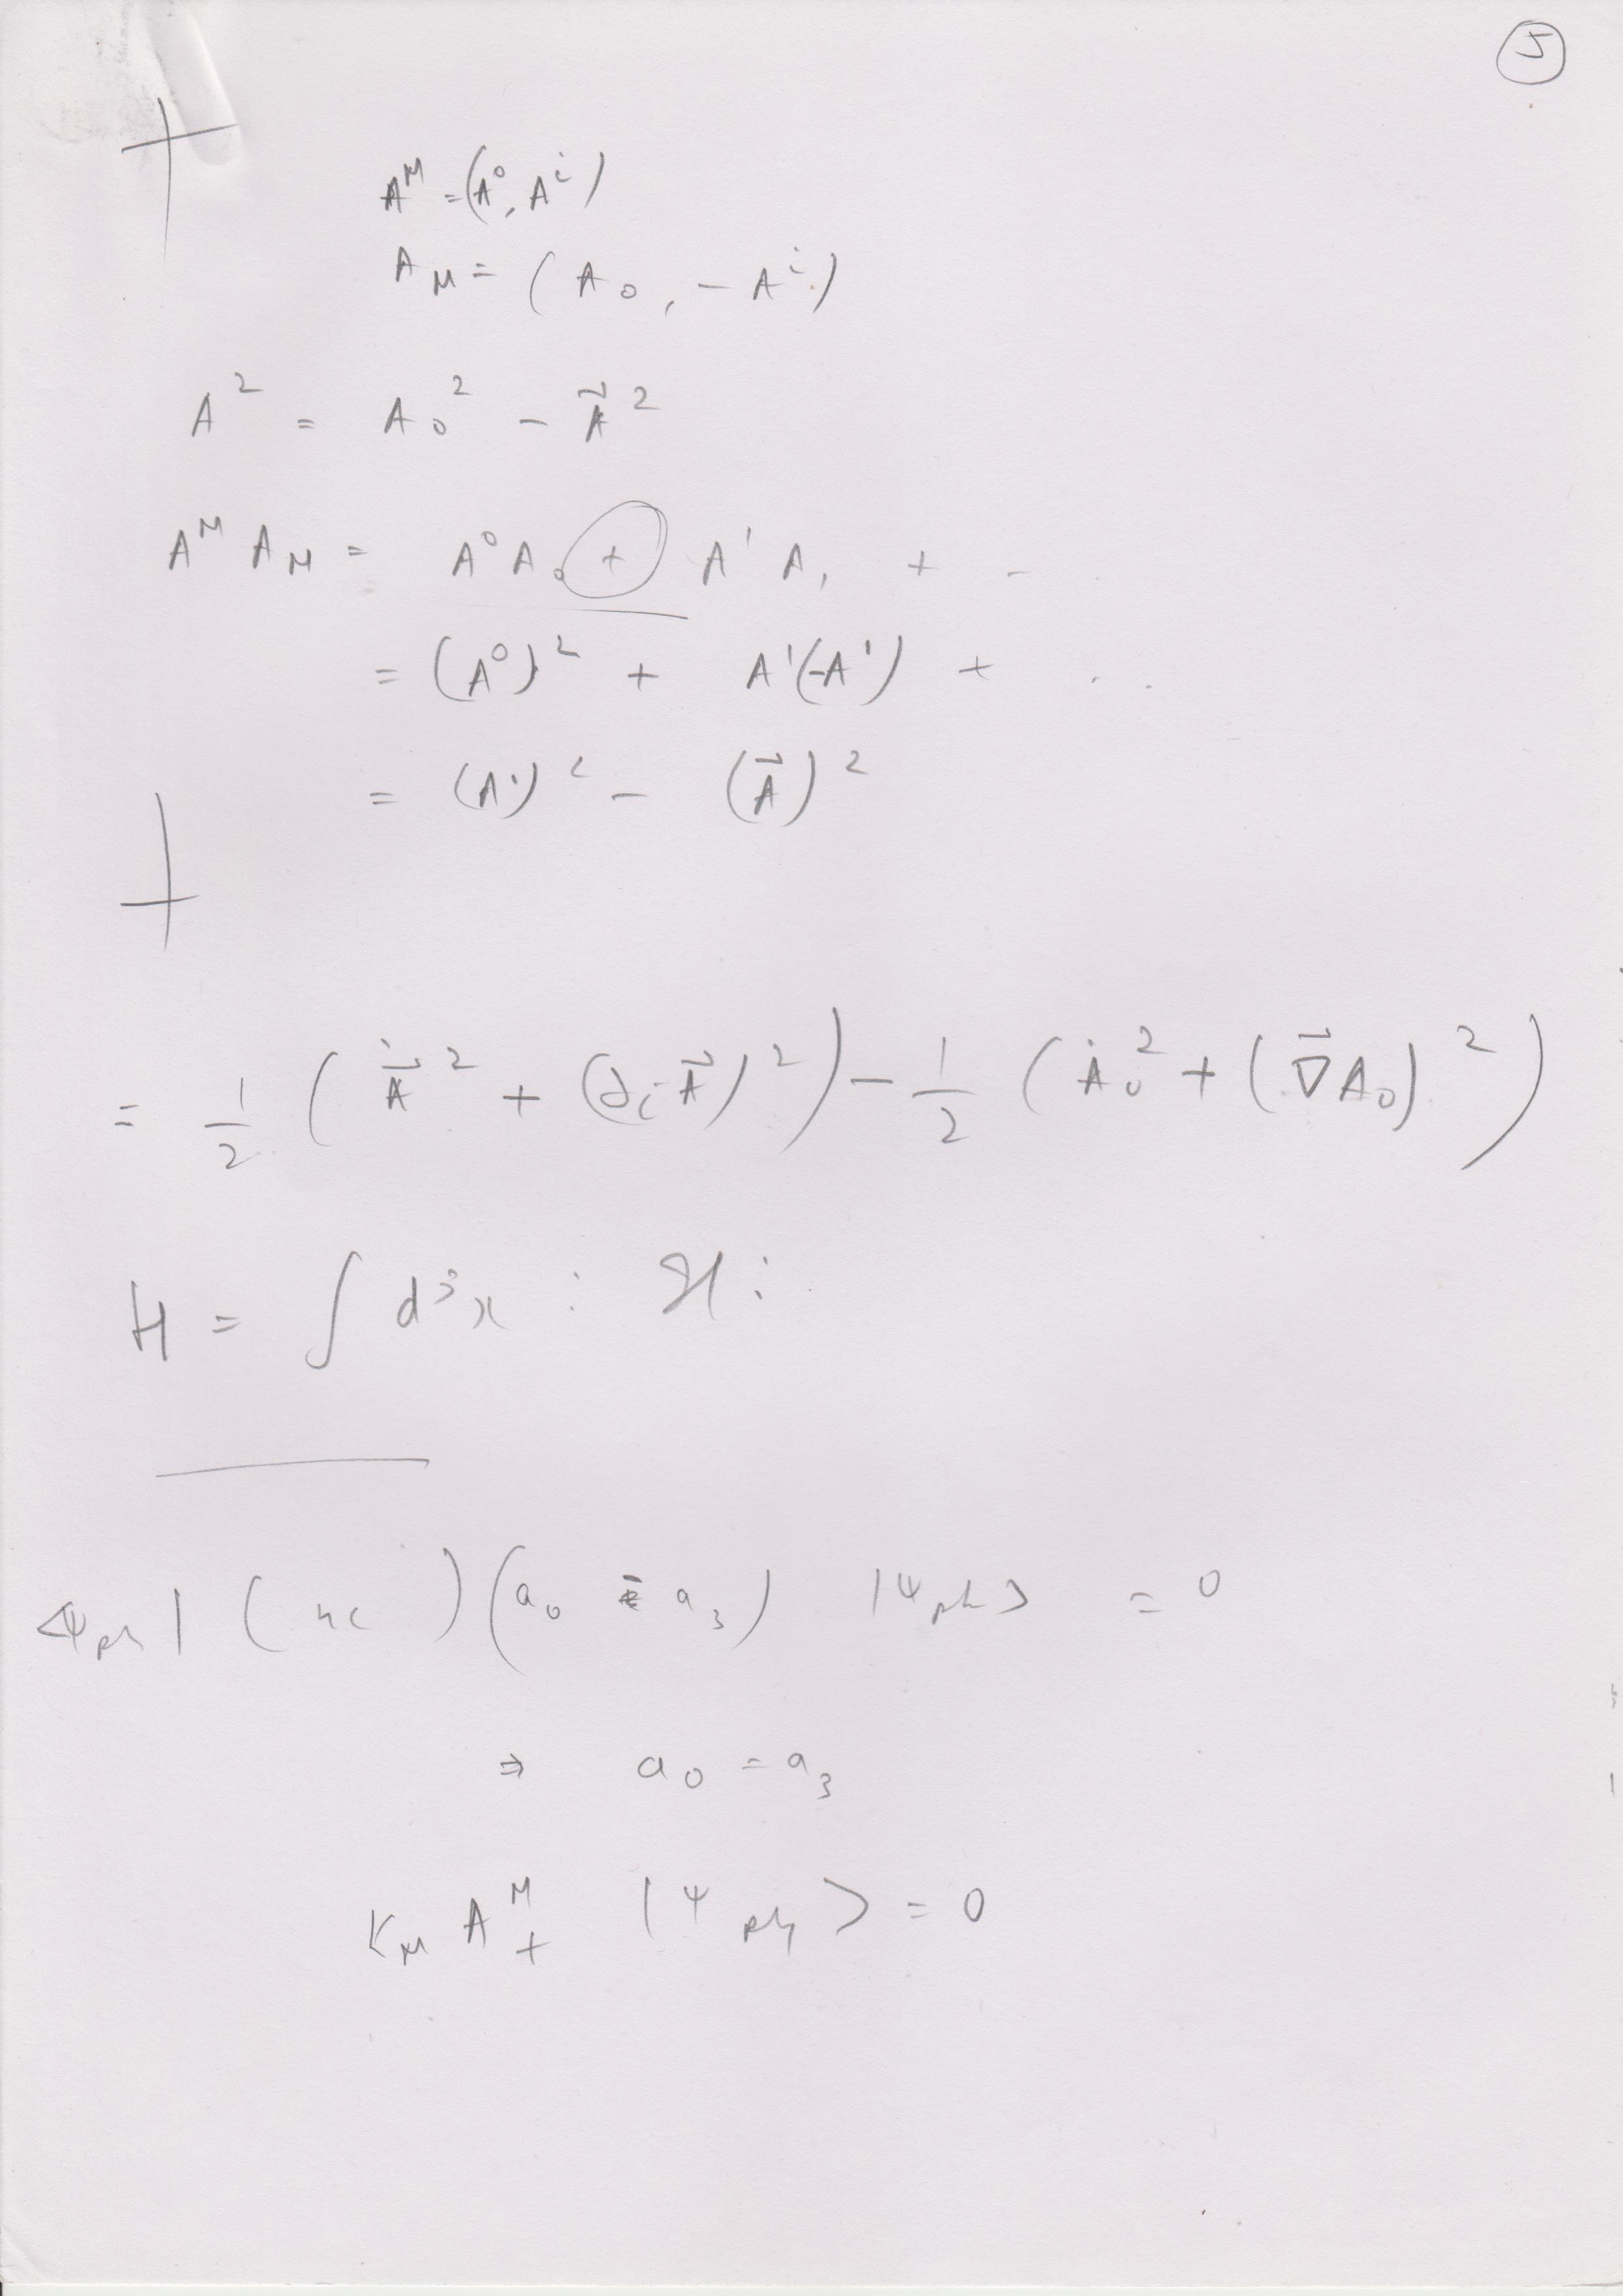 5
A^μ = (A^0, A^i)
A_μ = (A_0, -A^i)
A^2 = A_0^2 - \vec{A}^2
A^μ A_μ = A^0 A_0 + A^1 A_1 + - .
= (A^0)^2 + A^1(-A^1) + . .
= (A^0)^2 - (\vec{A})^2
= 1/2 ( \dot{\vec{A}}^2 + (∂_i \vec{A})^2 ) - 1/2 ( \dot{A}_0^2 + (\vec{∇} A_0)^2 )
H = ∫ d^3x : ℋ :
<ψ_ph| ( hc ) (a_0 - a_3) |ψ_ph> = 0
⇒ a_0 = a_3
K_μ A^μ_+ |ψ_ph> = 0